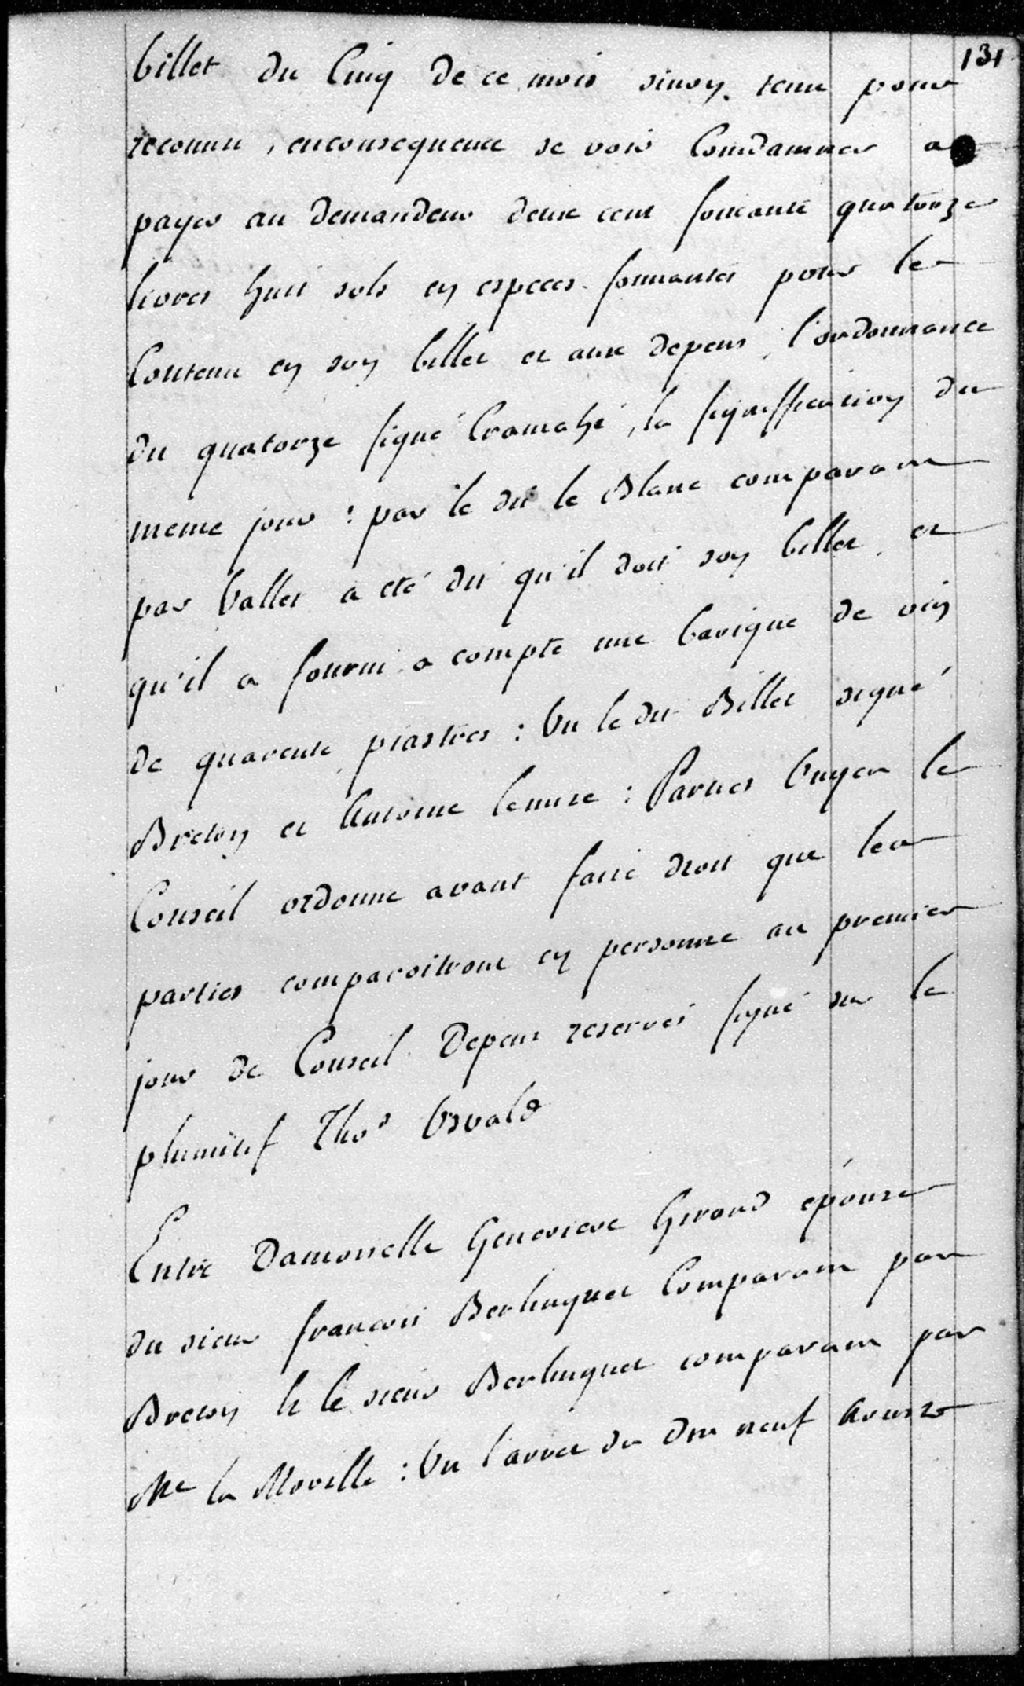 131
billet du Cinq de ce mois sinoy tenu pour
reconnu, enconsequence se voir Condamner a
payer au demandeur deux cent soixante quatorze
livres huit sols en especes sonnantes pour le
Contenu en soy billet et aux depens, l'ordonnance
du quatorze signé Cramahé, la signiffication du
meme jour : par le dit le Blanc comparant
par Vallet a eté dit qu'il doit soy billet et
qu'il a fourni a compte une barique de vin
de quarente piastres : Vu le dit Billet signé
Bretoy et Antoine : Parties Ouyes le
Conseil ordonne avant faire droit que les
parties comparoitront en personne au premier
jour de Conseil Depens reservés signé sur le
plumitif Thos Osvald
Entre Damoiselle Genevieve Giroud épouse
du sieur francois Berlinguet Comparant par
Bretoy Et le sieur Berlinguet comparant par
Me la Moville : Vu l'arret du dix neuf